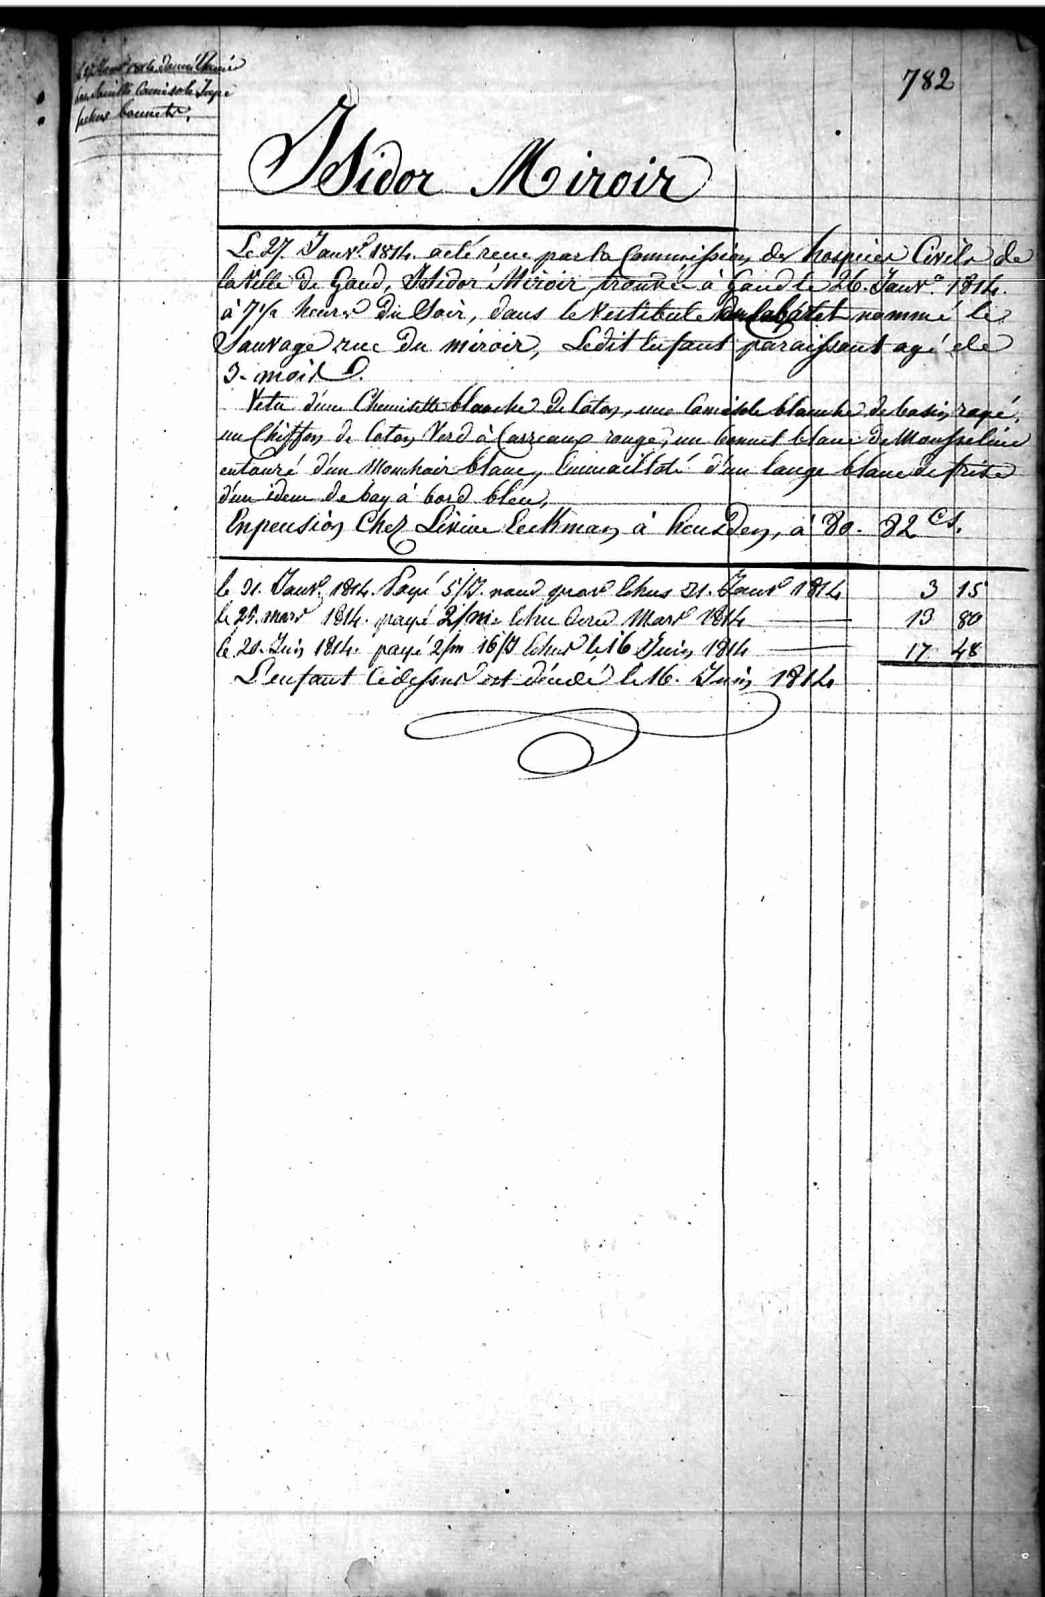 782
donné
camisole Jupe
bonnets,
Isidor Miroir
Le 27. Janvr. 1814. a été recue par la Commission des hospices Civils de
la Ville de Gand, Isidor Miroir, trouvé à Gand le 26. Janvr. 1814.
à 7 1/2 heures Du Soir, dans le Vestibule du Cabaret nommé le
Sauvage rue Du miroir, Ledit Enfant paraissant agé de
3. mois.
Vetu d'une Chemisette blanche De Coton, une Camisole blanche de basin rayé,
un Chiffon de Coton Verd à Carreaux rouge, un bonnet blanc De Mousseline
entouré d'un Mouchoir blanc, Emmailloté d'un lange blanc de frise
d'un idem de bay à bord bleu,
En pension Chez Livine Eeckman à heusden, à 80. 82 Cs.
le 31. Janvr. 1814. Payé 5/J. echus 31. Janvr 1814 3 15
le 25. mars 1814. payé 2/m. Echu Mars 1814 13 80
le 20. Juin 1814. payé 2/m 16/J Echus le 16 Juin 1814 17 48
L'enfant Cidessus est décédé le 16. Juin 1814